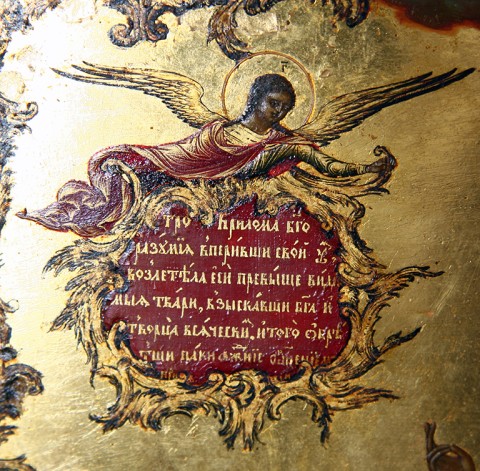 тро Крилома бг҃о
разумїя вперивши свой ᲂу҆
возлетѣла еси превыще види
мыя твари, взыскавши бг҃а и
творца всяческиⷯ, и того ѡбрѣ
тши паки